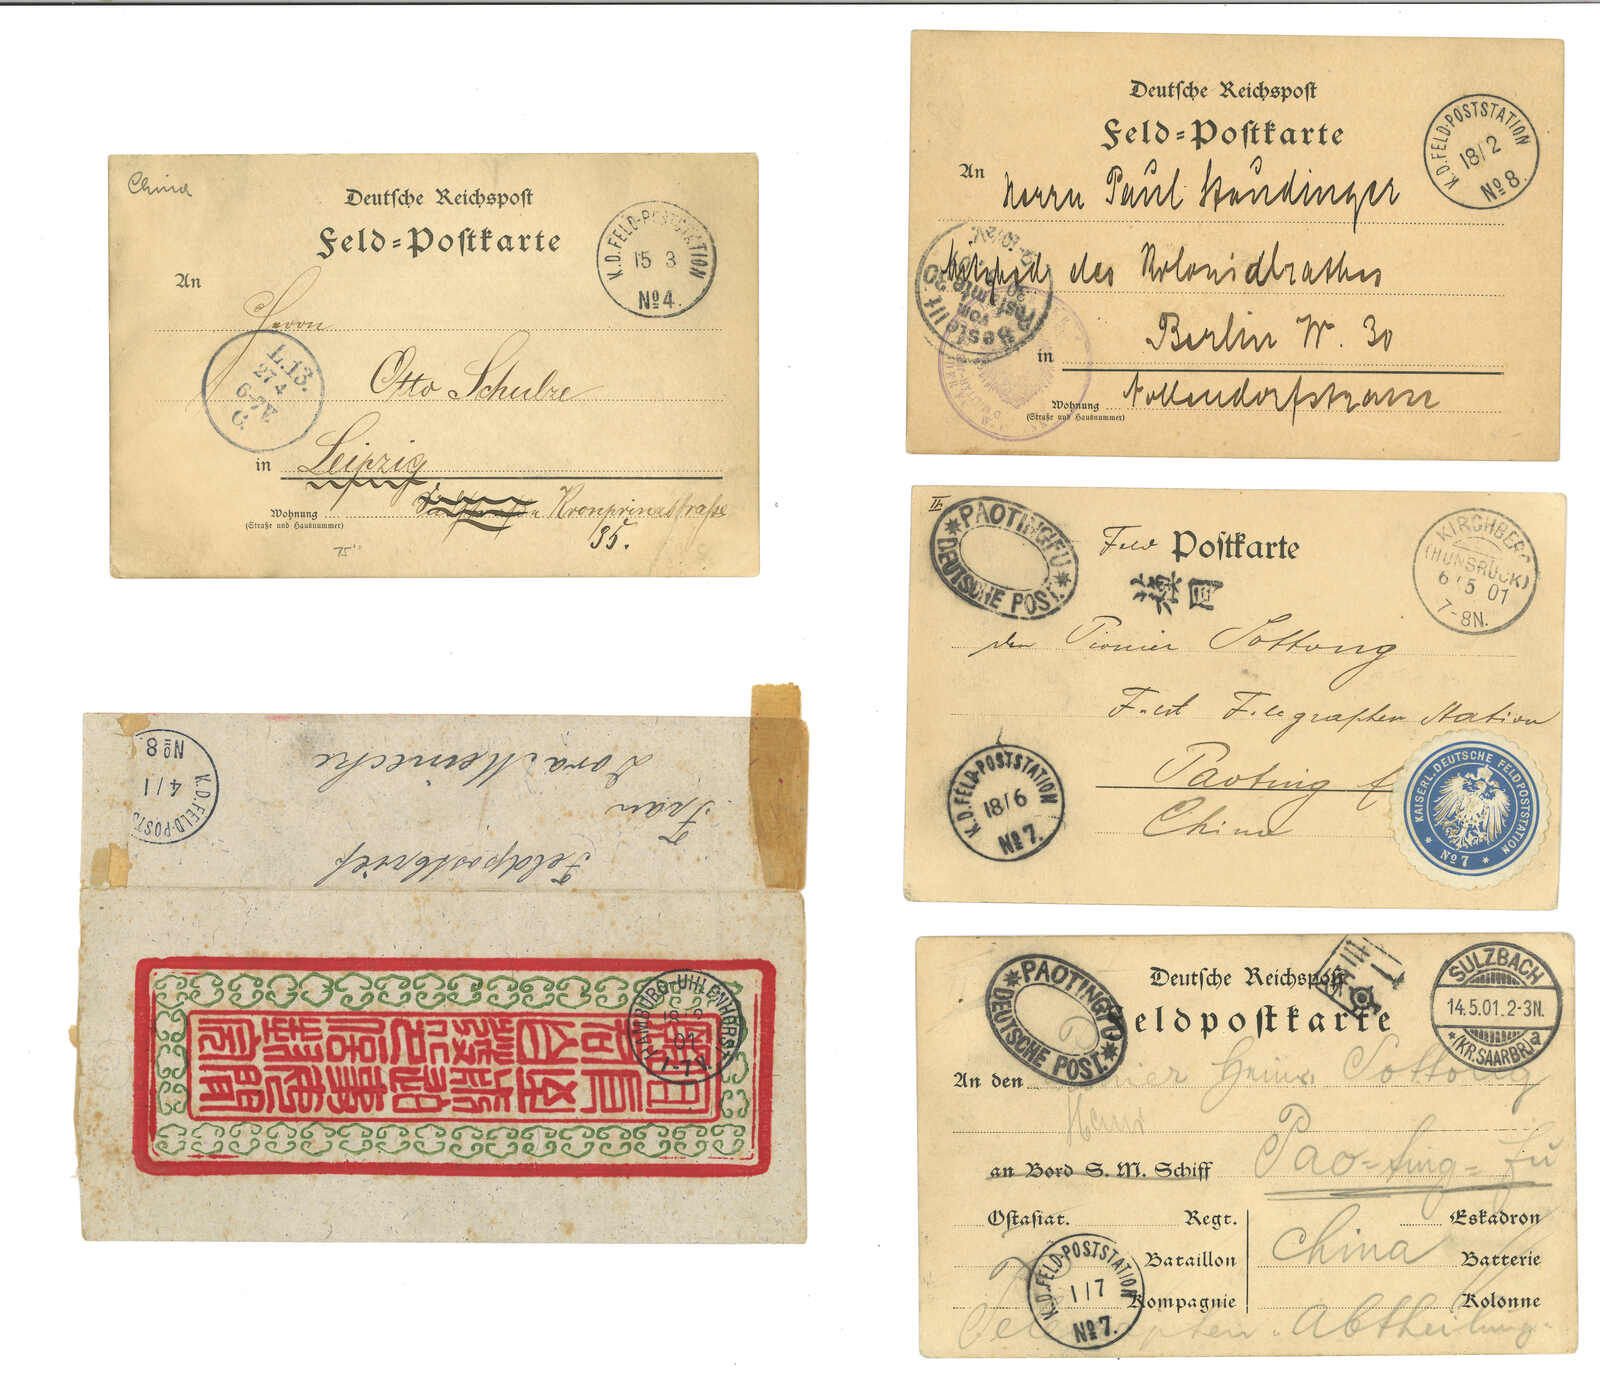 China
Deutsche Reichspost
Feld=Postkarte
An
K.D.FELD-POSTSTATION
15 3
No 4.
Herrn
L.13.
27 4
6-7V
C.
Otto Schulze
in Leipzig
Wohnung
(Straße und Hausnummer)
Kronprinzstraße
35.
75
Deutsche Reichspost
Feld=Postkarte
K.D.FELD-POSTSTATION
18/2
No 8.
An Herrn Paul Staudinger
Mitglied des Kolonialrathes
Bestellt
vom
Postamte 30
in Berlin W. 30
Wohnung
(Straße und Hausnummer)
Nollendorfstrasse
PAOTINGFU
DEUTSCHE POST.
Feld Postkarte
KIRCHBERG
(HUNSRÜCK)
6/5 01
7-8N.
den Pionier Sottong
Feld Telegraphen Station
K.D.FELD-POSTSTATION
18/6
No 7.
Paoting f
China
KAISERL. DEUTSCHE FELDPOSTSTATION
No 7
K.D.FELD-POSTS
4/1
No 8
Feldpostbrief
Frau
Dora Meinecke
HAMBURG-UHLENHORST
01
1-7V.
PAOTINGFU
DEUTSCHE POST.
Deutsche Reichspost
eldpostkarte
SULZBACH
14.5.01.2-3N.
*(KR.SAARBR.)a
An den Heinr. Sottong
an Bord S. M. Schiff
Pao-ting-fu
Ostasiat. Regt.
Eskadron
China
Bataillon
Batterie
Kompagnie
Kolonne
K.D.FELD-POSTSTATION
1/7
No 7.
Abtheilung